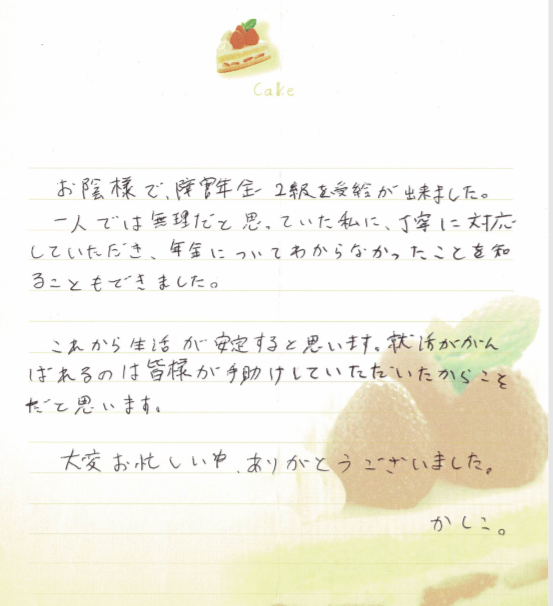 Cake
お陰様で、障害年金 2級を受給が出来ました。
一人では無理だと思っていた私に、丁寧に対応
していただき、年金についてわからなかったことを知
ることもできました。
これから生活が安定すると思います。就活ががん
ばれるのは皆様が手助けしていただいたからこと
だと思います。
大変お忙しい中、ありがとうございました。
かしこ。